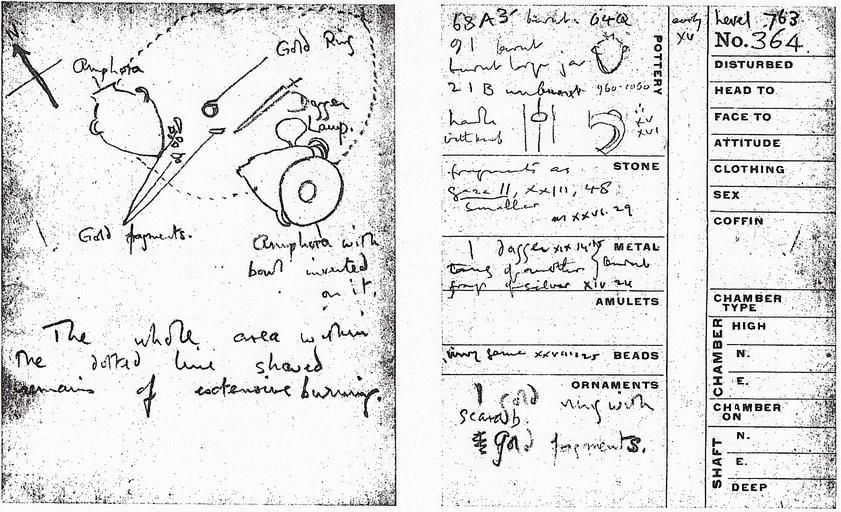 N
Gold Ring
Amphora
Dagger
Lamp.
Gold fragments.
Amphora with
bowl inverted
on it.
The whole area within
the dotted line showed
remains of extensive burning.
68A3 burnt. 64Q
91 burnt
burnt large jar
21B unburnt 960-1050
handle
without
XV
XVI
POTTERY
fragments as
STONE
gaza II, XXIII, 48
smaller
as XXVI. 29
1 dagger XIX
METAL
tang of another } burnt
frag of silver XIV 24
AMULETS
BEADS
ORNAMENTS
1 gold ring with
scarab.
gold fragments.
XV
Level 763
No. 364.
DISTURBED
HEAD TO
FACE TO
ATTITUDE
CLOTHING
SEX
COFFIN
CHAMBER
TYPE
CHAMBER
HIGH
N.
E.
CHAMBER
ON
SHAFT
N.
E.
DEEP